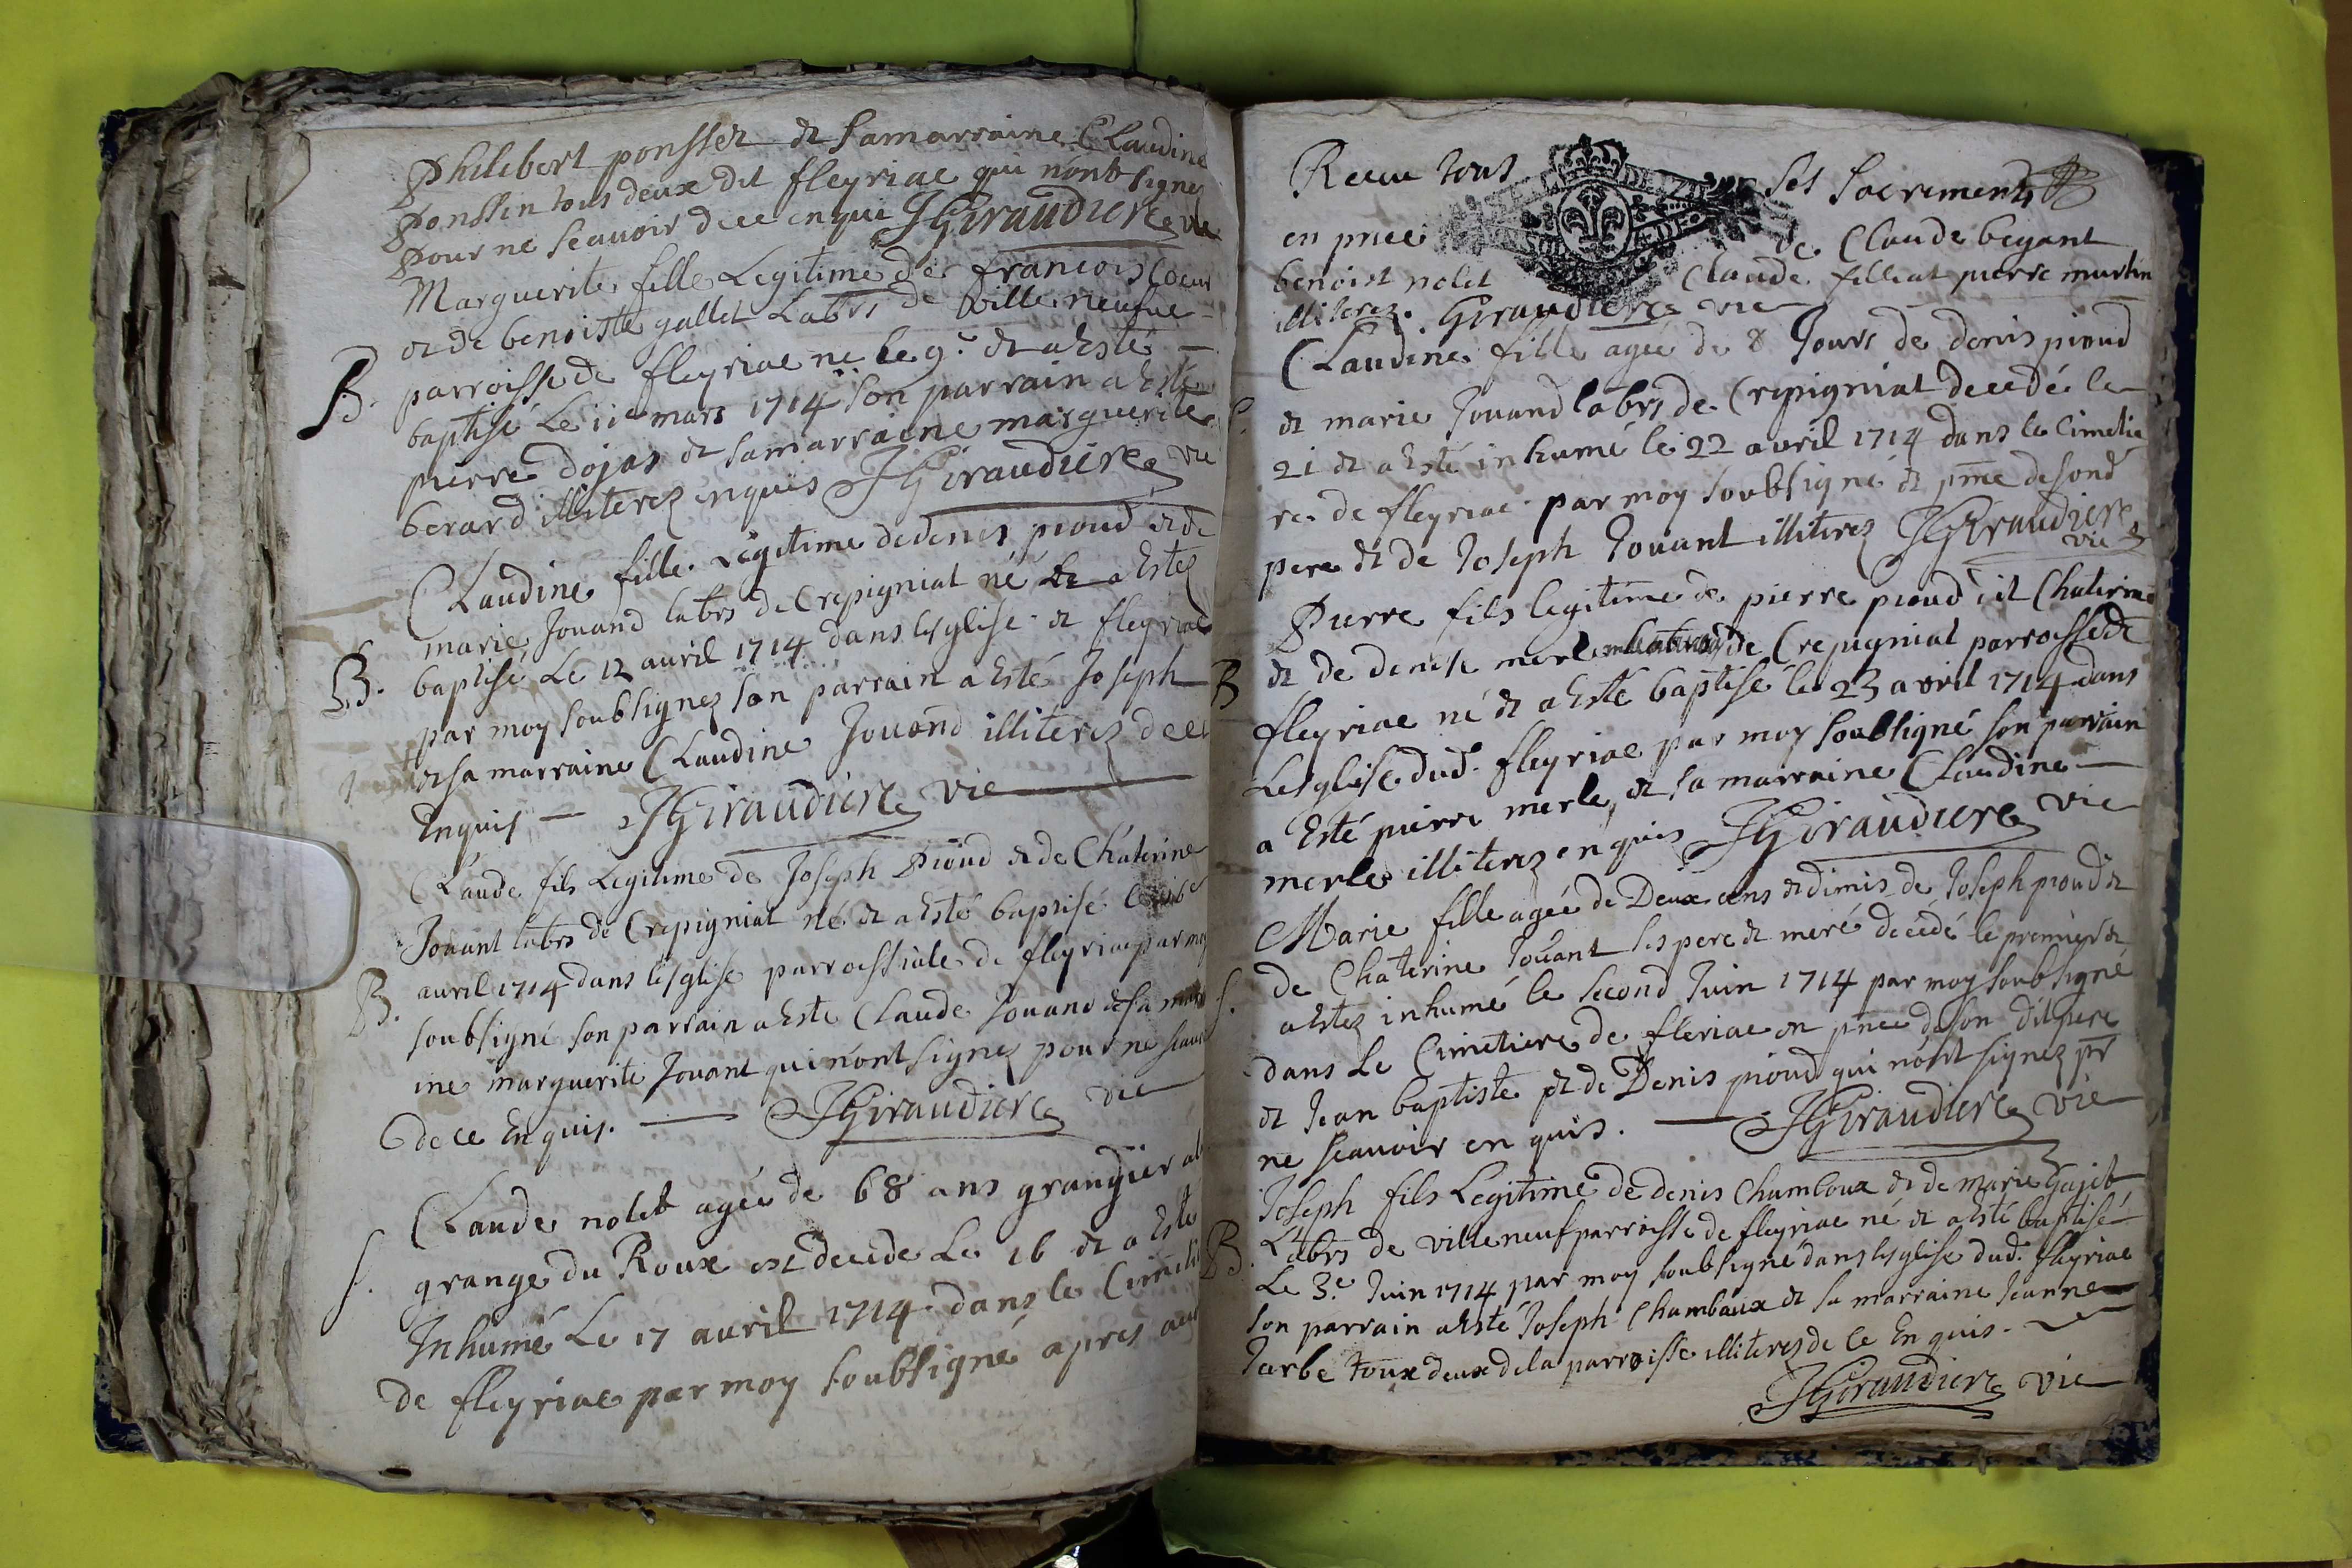 Philibert ponsset et sa marraine Claudine
Ponssin tous deux dit fleyriac qui n'ont signez
pour ne scauoir de ce enquis JGiraudiere vie
Marguerite fille Legitime de francois
et de benoiste gallet Labrs de Ville neufue
B. parroisse de fleyriac ne le 9e et a Esté
baptisé Le 11e mars 1714 son parrain a Esté
pierre dojas et sa marraine marguerite
berard illiterez enquis JGiraudiere vie
Claudine fille Legitime de denis pioud et de
marie Jouand labrs de Crepigniat né a Estez
B. baptisé Le 12 auril 1714 dans lesglise de fleyriac
par moy soubsignez son parrain a Esté Joseph
et sa marraine Claudine Jouand illiterez de ce
Enquis — JGiraudiere vie
Claude fils Legitime de Joseph Pioud et de Chaterine
Jouant labrs de Crepigniat né et a Esté baptisé le
B. auril 1714 dans lesglise parroissiale de fleyriac par moy
soubsigné son parrain a Esté Claude Jouand et sa marra
ine marguerite Jouant qui n'ont signez pour ne scauoir
de ce Enquis. — JGiraudiere vie
Claude nolet agée de 68 ans grangier
S. grange du Roux est decede Le 16 et a Esté
Inhumé Le 17 auril 1714 dans le Cimetie
de fleyriac par moy soubsigné apres auoir
Receu tous ses sacrements
en pnce de Claude beyant
benoist nolet Claude filliat pierre martin
illiterez. Giraudiere vie
Claudine fille agée de 8 Jours de denis pioud
S. et marie Jouand labrs de Crepigniat decedé le
21 et a Esté inhumé le 22 auril 1714 dans le Cimetie
re de fleyriac par moy soubsigné et pnce de sond
pere et de Joseph Jouant illiterez JGiraudiere
vie
Pierre fils legitime de pierre pioud dit Chaterine
et de denise merle de Crepigniat parroisse de
B fleyriac né et a Esté baptisé le 23 avril 1714 dans
Lesglise dud. fleyriac par moy soubsigné son parrain
a Esté pierre merle et sa marraine Claudine
merle illiterez enquis JGiraudiere vie
Marie fille agée de Deux ans et dimis de Joseph pioud et
de Chaterine Jouant ses pere et mere decedé le premier et
S. a Estez inhumé le second Juin 1714 par moy soubsigné
dans Le Cimetiere de fleriac en pnce de son dit pere
et Jean baptiste et de Denis pioud qui n'ont signez pr
ne scauoir enquis. — JGiraudiere vie
Joseph fils Legitime de denis Chamboux et de marie Gajet
Labrs de villeneuf parroisse de fleyriac né et a Esté baptisé
B. Le 3.e Juin 1714 par moy soubsigné dans lesglise dud. fleyriac
son parrain a Esté Joseph Chambaux et sa marraine Jeanne
Jarbe toux deux de la parroisse illiterez de ce Enquis.
JGiraudiere vie